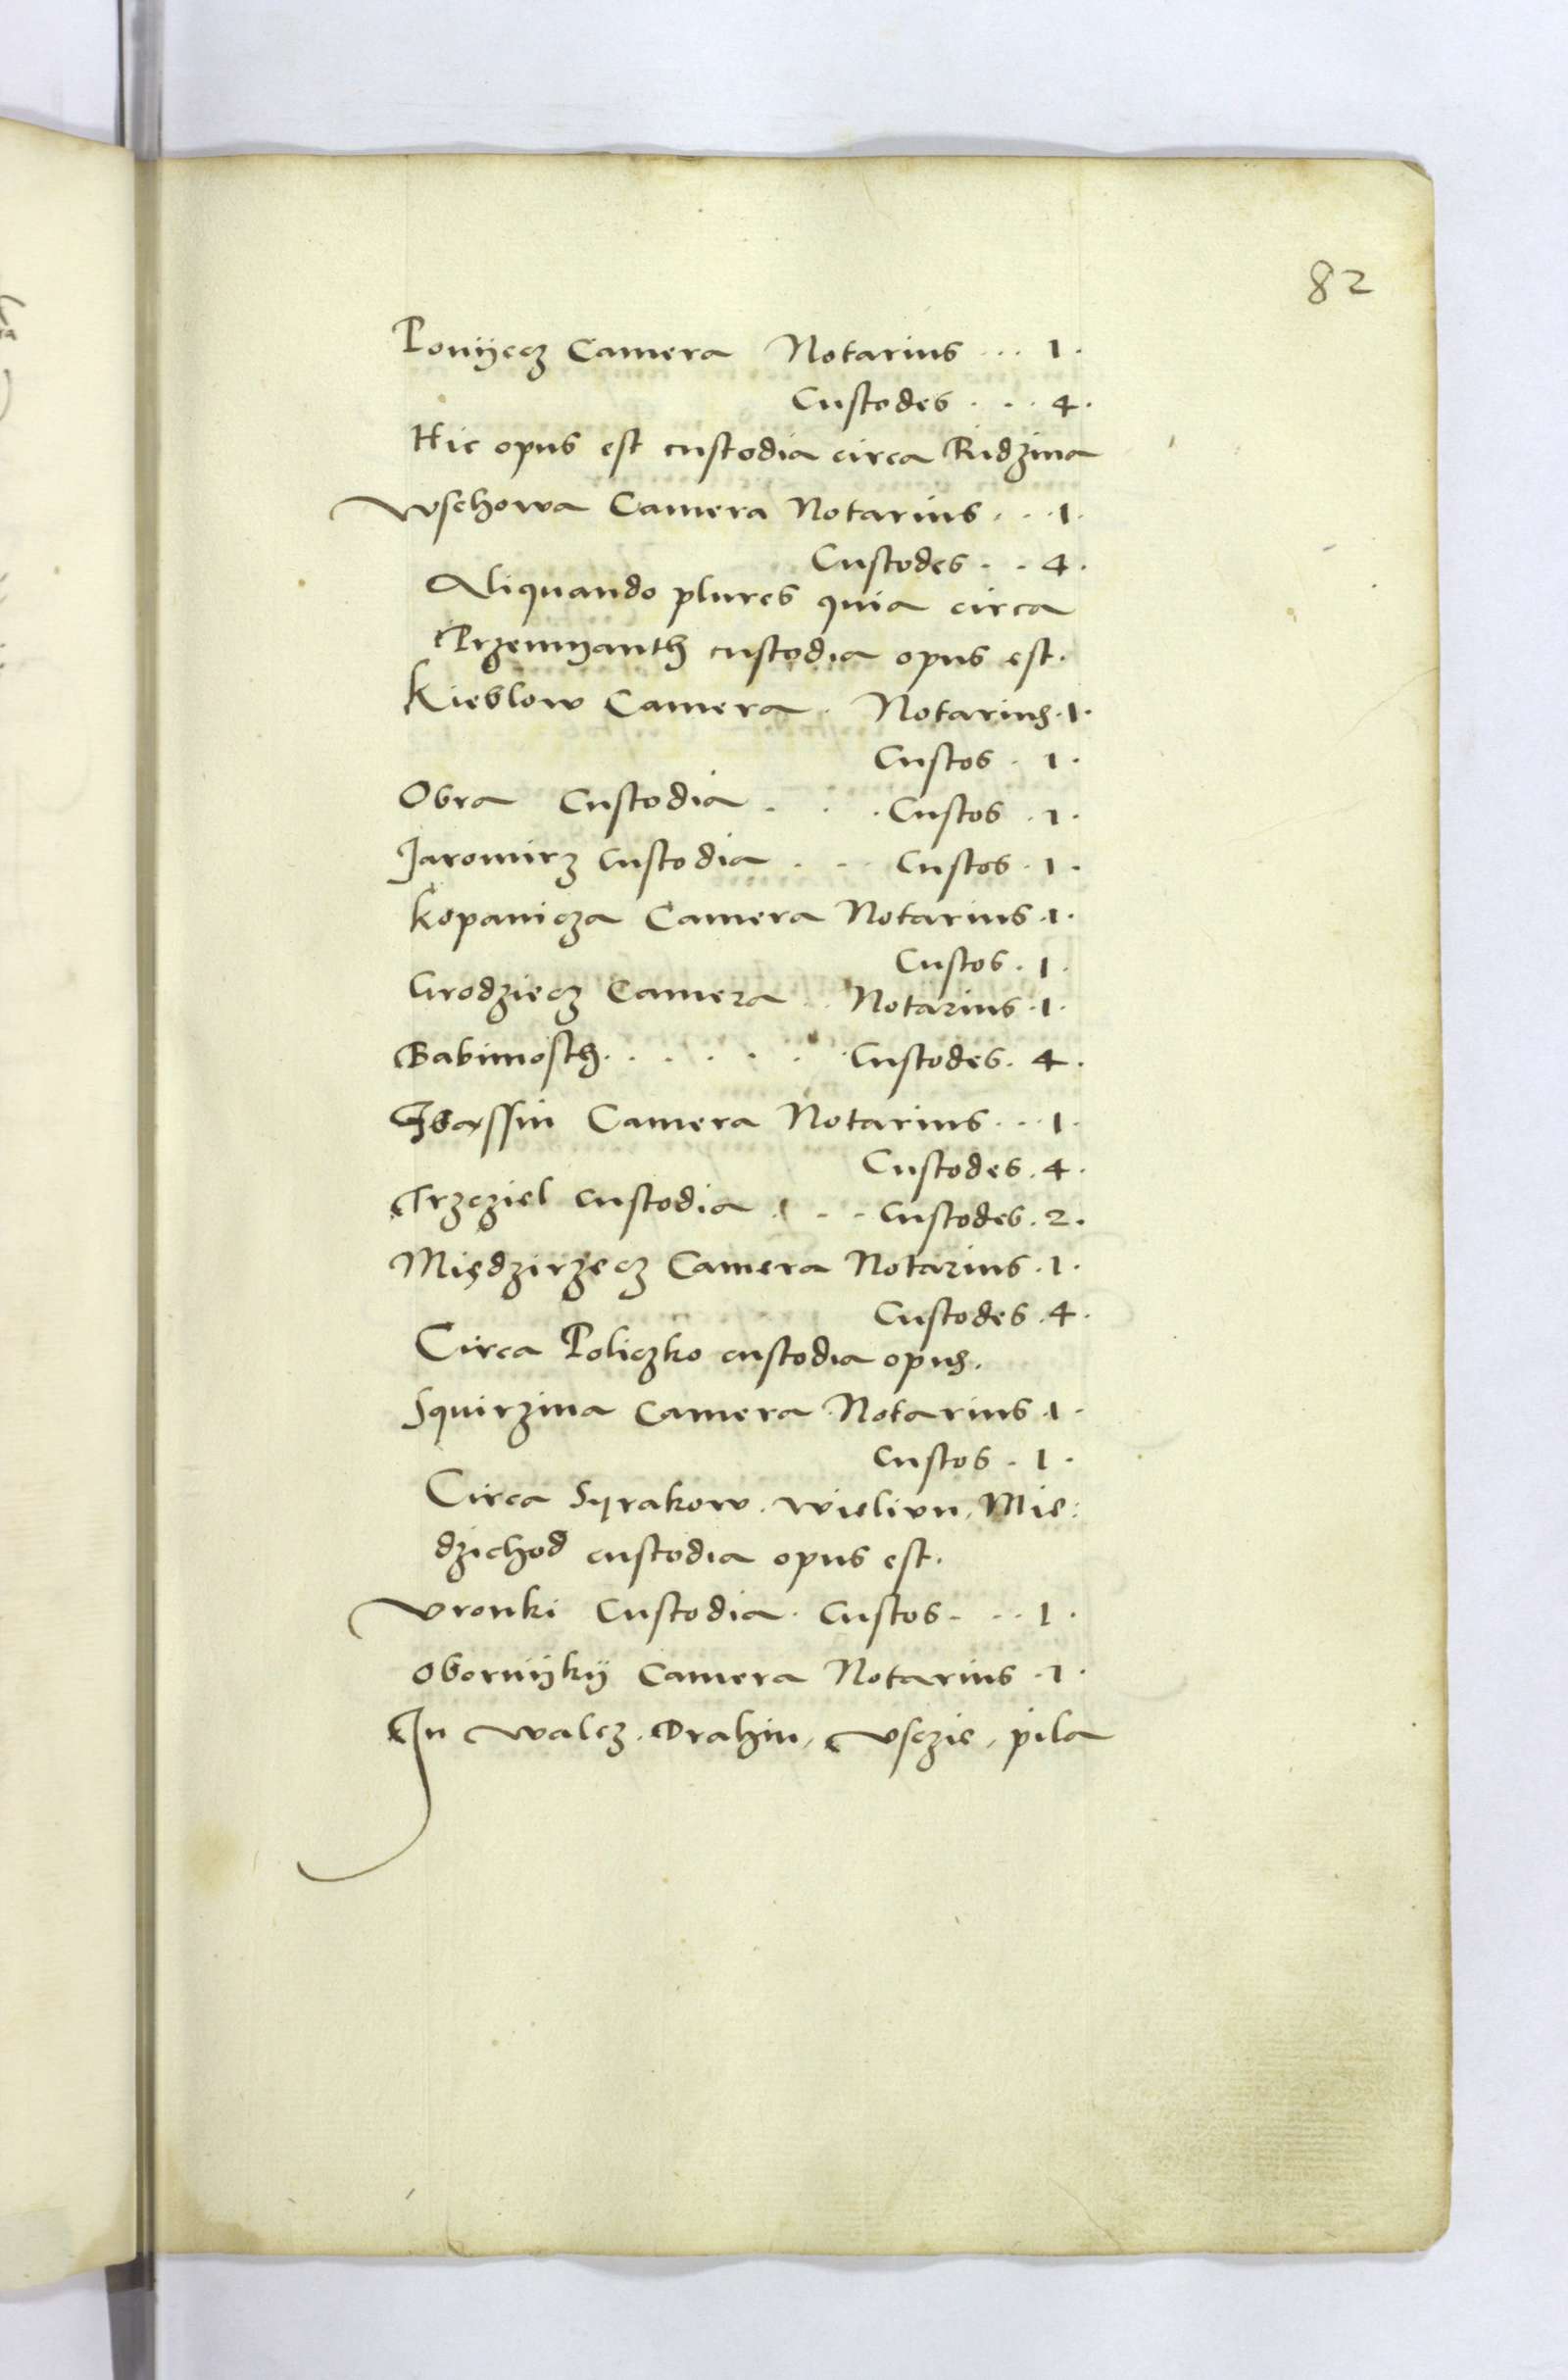 82
Ponijecz Camera Notarius ... 1.
Custodes . . . 4.
Hic opus est custodia circa Ridzina
Wschowa Camera Notarius . . . 1.
Custodes . . 4.
Aliquando plures quia circa
Przemijanth custodia opus est.
Kieblow Camera . Notarius . 1.
Custos . 1.
Obra Custodia . . . Custos . 1.
Jaromirz custodia . . . Custos . 1.
Kopanicza Camera Notarius . 1.
Custos . 1.
Grodziecz Camera . . Notarius . 1.
Babimosth . . . . . . Custodes . 4.
Zbassin Camera Notarius . . . 1.
Custodes . 4.
Trzcziel custodia . . . Custodes . 2.
Międzirzecz Camera Notarius . 1.
Custodes . 4.
Circa Policzko custodia opus.
Squirzina Camera Notarius . 1.
Custos . 1.
Circa Syrakow . Wielivn, Mie:
dzichod custodia opus est.
Vronki Custodia . Custos . . . 1.
Obornijkij Camera Notarius . 1.
In Walcz . Drahin, Vsczie, pila